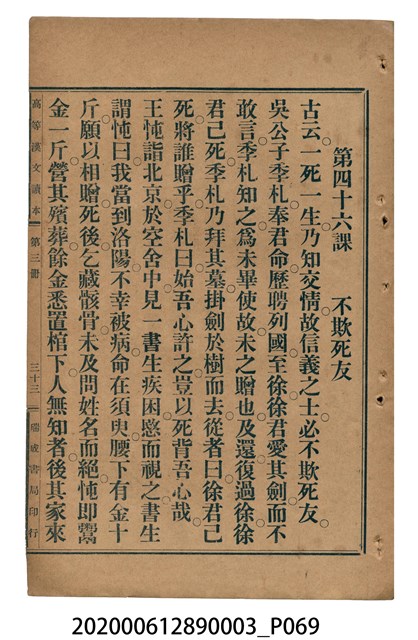 第四十六課　不欺死友
古云一死一生乃知交情故信義之士必不欺死友。
吳公子季札奉君命歷聘列國至徐徐君愛其劍而不
敢言季札知之為未畢使故未之贈也及還復過徐徐
君已死季札乃拜其墓掛劍於樹而去從者曰徐君已
死將誰贈乎季札曰始吾心許之豈以死背吾心哉。
王忳詣北京於空舍中見一書生疾困愍而視之書生
謂忳曰我當到洛陽不幸被病命在須臾腰下有金十
斤願以相贈死後乞藏骸骨未及問姓名而絕忳即鬻
金一斤營其殯葬餘金悉置棺下人無知者後其家來
高等漢文讀本　第三冊　三十三　瑞成書局印行
202000612890003_P069